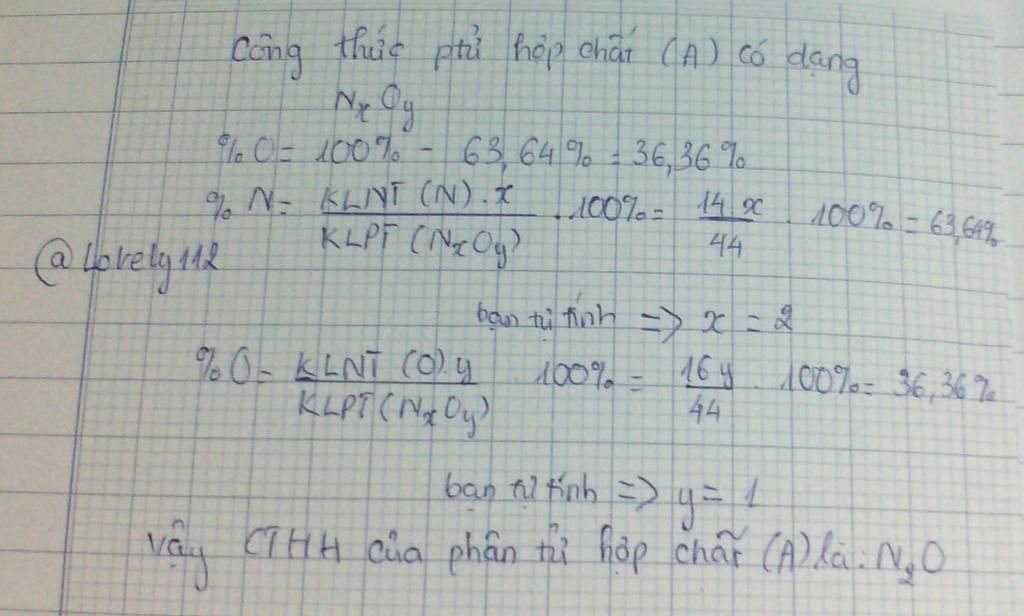 Công thức ptử hợp chất (A) có dạng
NxOy
%O = 100% - 63,64% = 36,36%
%N = KLNT (N) . x / KLPT (NxOy) . 100% = 14 x / 44 . 100% = 63,64%
@Lovely112
bạn tự tính => x = 2
%O = KLNT (O). y / KLPT (NxOy) . 100% = 16 y / 44 . 100% = 36,36%
bạn tự tính => y = 1
Vậy CTHH của phân tử hợp chất (A) là: N2O